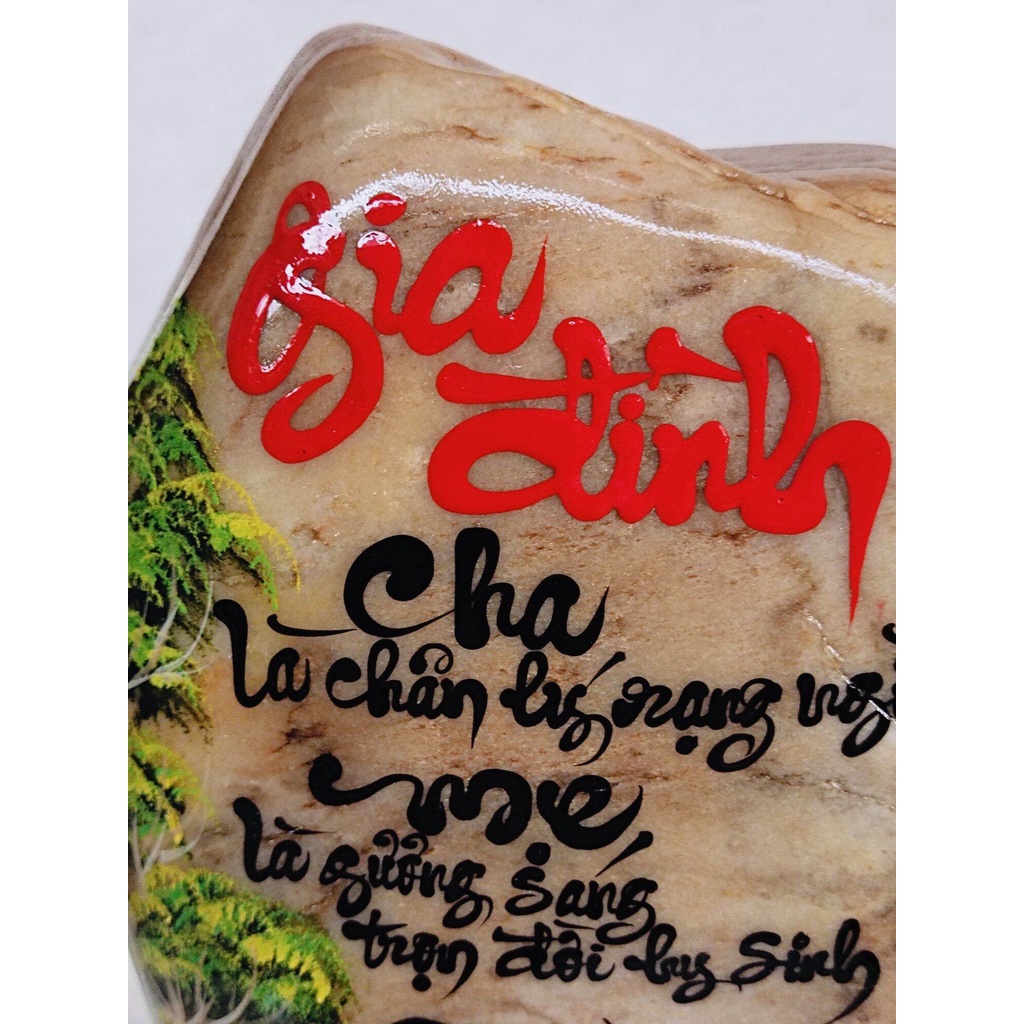 Gia
đình
Cha
là chân lý rạng
Mẹ
là gương sáng
trọn đời hy sinh